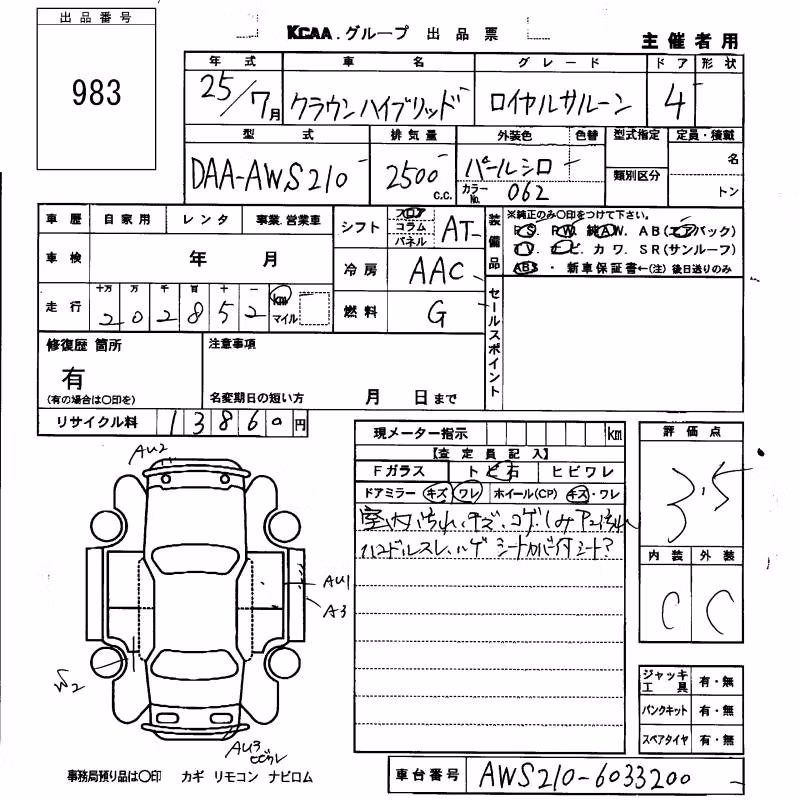 出品番号
983
KCAA.グループ 出品票
主催者用
年式 車名 グレード ドア 形状
25/7月 クラウンハイブリッド ロイヤルサルーン 4
型式 排気量 外装色 色替 型式指定 定員・積載
DAA-AWS210 2500 c.c. パールシロ 類別区分 名
カラーNo. 062 トン
車歴 自家用 レンタ 事業.営業車 シフト フロア コラム パネル AT
装備品 ※純正のみ○印をつけて下さい。
P.S. P.W. 純A.W. A B (エアバック)
T V. ナビ. カワ. S R (サンルーフ)
ABS ・ 新車保証書←(注) 後日送りのみ
車検 年 月 冷房 AAC
走行 十万 万 千 百 十 一 km マイル
202852
燃料 G
セールスポイント
修復歴 箇所 注意事項
有
(有の場合は○印を) 名変期日の短い方 月 日まで
リサイクル料 13860円
現メーター指示 km
【査定員記入】
Fガラス トビ石 ヒビワレ
ドアミラー キズ ワレ ホイール(CP) キズ・ワレ
室内汚れ、キズ、コゲ、しみ
ハンドルスレ、ハゲ シートカバー付シート?
評価点
3.5
内装 外装
C C
AU2
AU1
A3
S2
AU3
ジャッキ工具 有・無
パンクキット 有・無
スペアタイヤ 有・無
事務局預り品は○印 カギ リモコン ナビロム
車台番号 AWS210-6033200